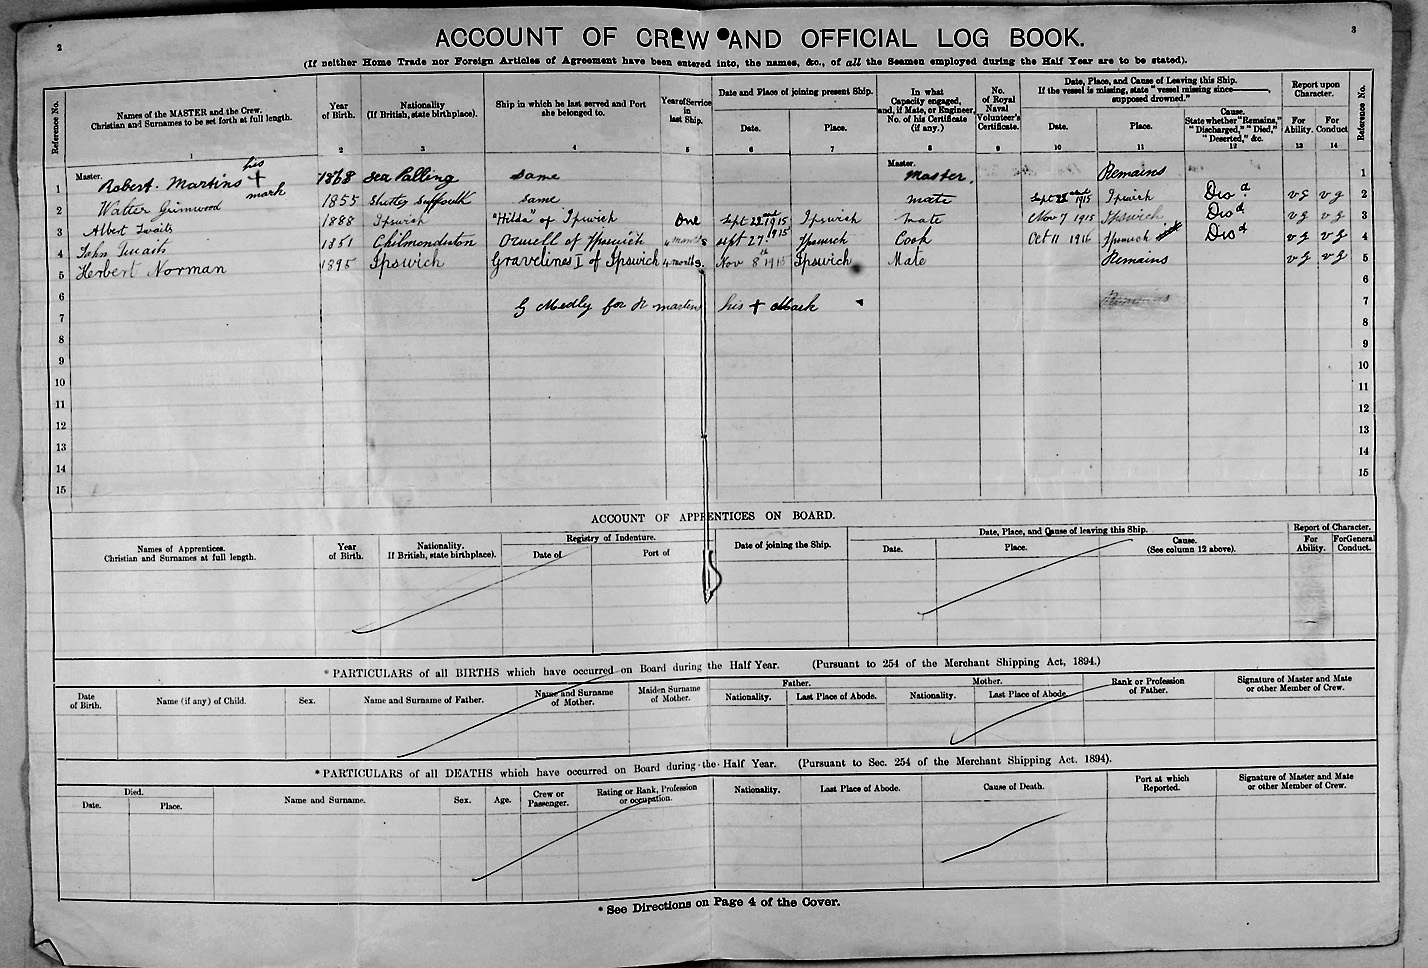 2
3
ACCOUNT OF CREW AND OFFICIAL LOG BOOK.
(If neither Home Trade nor Foreign Articles of Agreement have been entered into, the names, &c., of all the Seamen employed during the Half Year are to be stated).
Reference No. | Names of the MASTER and the Crew. Christian and Surnames to be set forth at full length. | Year of Birth. | Nationality (If British, state birthplace). | Ship in which he last served and Port she belonged to. | Year of Service in last Ship. | Date and Place of joining present Ship. Date. Place. | In what Capacity engaged, and, if Mate, or Engineer, No. of his Certificate (if any.) | No. of Royal Naval Volunteer's Certificate. | Date, Place, and Cause of Leaving this Ship. If the vessel is missing, state "vessel missing since———, supposed drowned." Date. Place. Cause. State whether "Remains," "Discharged," "Died," "Deserted," &c. | Report upon Character. For Ability. For Conduct | Reference No.
1 2 3 4 5 6 7 8 9 10 11 12 13 14
1 Master. Robert Martins his + mark 1868 Sea Palling Same Master. Master. Remains 1
2 Walter Grimwood 1855 Suffolk Same Mate Sept 22nd 1915 Ipswich Disd v g v g 2
3 Albert Twaits 1888 Ipswich "Hilda" of Ipswich One Sept 22nd 1915 Ipswich Mate Nov 7 1915 Ipswich Disd v g v g 3
4 John Twaits 1851 Chilmondiston Orwell of Ipswich 4 months Sept 27 1915 Ipswich Cook Oct 11 1916 Ipswich Disd v g v g 4
5 Herbert Norman 1895 Ipswich Gravelines I of Ipswich 4 months. Nov 8th 1915 Ipswich Mate Remains v g v g 5
6 6
7 G Medly for R martens his + Mark Remains 7
8 8
9 9
10 10
11 11
12 12
13 13
14 14
15 15
ACCOUNT OF APPRENTICES ON BOARD.
Names of Apprentices. Christian and Surnames at full length. | Year of Birth. | Nationality. If British, state birthplace). | Registry of Indenture. Date of Port of | Date of joining the Ship. | Date, Place, and Cause of leaving this Ship. Date. Place. Cause. (See column 12 above). | Report of Character. For Ability. For General Conduct.
* PARTICULARS of all BIRTHS which have occurred on Board during the Half Year. (Pursuant to 254 of the Merchant Shipping Act, 1894.)
Date of Birth. | Name (if any) of Child. | Sex. | Name and Surname of Father. | Name and Surname of Mother. | Maiden Surname of Mother. | Father. Nationality. Last Place of Abode. | Mother. Nationality. Last Place of Abode. | Rank or Profession of Father. | Signature of Master and Mate or other Member of Crew.
* PARTICULARS of all DEATHS which have occurred on Board during the Half Year. (Pursuant to Sec. 254 of the Merchant Shipping Act, 1894).
Died. Date. Place. | Name and Surname. | Sex. | Age. | Crew or Passenger. | Rating or Rank, Profession or occupation. | Nationality. | Last Place of Abode. | Cause of Death. | Port at which Reported. | Signature of Master and Mate or other Member of Crew.
* See Directions on Page 4 of the Cover.